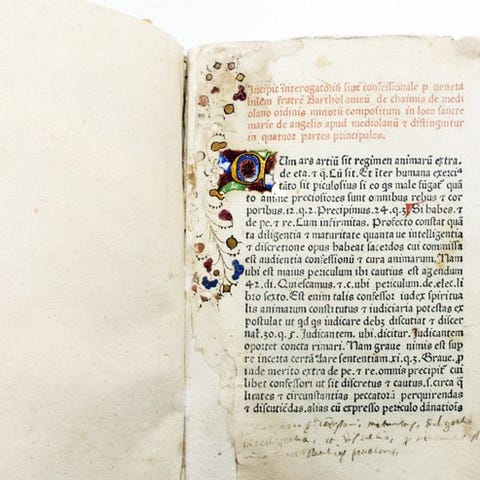 Incipit interrogatoriū siue confessionale ꝑ venera
bilem fratrē Bartholomeū de chaimis de medi
olano ordinis minoꝝ compositum in loco sancte
marie de angelis apud mediolanū ⁊ distinguitur
in quatuor partes principales.
CUm ars artiū sit regimen animarū extra.
de eta. ⁊ q̄. Cū sit. Et iter humana exerci
tāto sit piculosius si eo qs male fugat̄ quā
to anime preciosiores sunt omnibus rebus ⁊ cor
poribus. 12. q. 2. Precipimus. 24. q. 3. Si habes ⁊
de pe. ⁊ re. Cum infirmitas. Profecto constat quā
ta diligentia ⁊ maturitate quanta ve intelligētia
⁊ discretione opus habeat sacerdos cui commissa
est audientia confessionū ⁊ cura animarum. Nam
ubi est maius periculum ibi cautius est agendum
42. di. Quiescamus. ⁊ c. ubi periculum. de. elec. li
bro sexto. Est enim talis confessor iudex spiritua
lis animarum constitutus ⁊ iudiciaria potestas ex
postulat ut qd qs iudicare debꝫ discutiat ⁊ discer
nat. 30. q. 5. Judicantem. ubi. dicitur. Judicantem
oportet cuncta rimari. Nam graue nimis est sup
re incerta certā dare sententiam. xi. q. 3. Graue. ꝑ
inde merito extra de pe. ⁊ re. omnis precipit̄ cui
libet confessori ut sit discretus ⁊ cautus. s. circa q̄
litates ⁊ circumstantias peccatoꝝ perquirendas
⁊ discutiēdas. alias cū expresso periculo dānatiōis